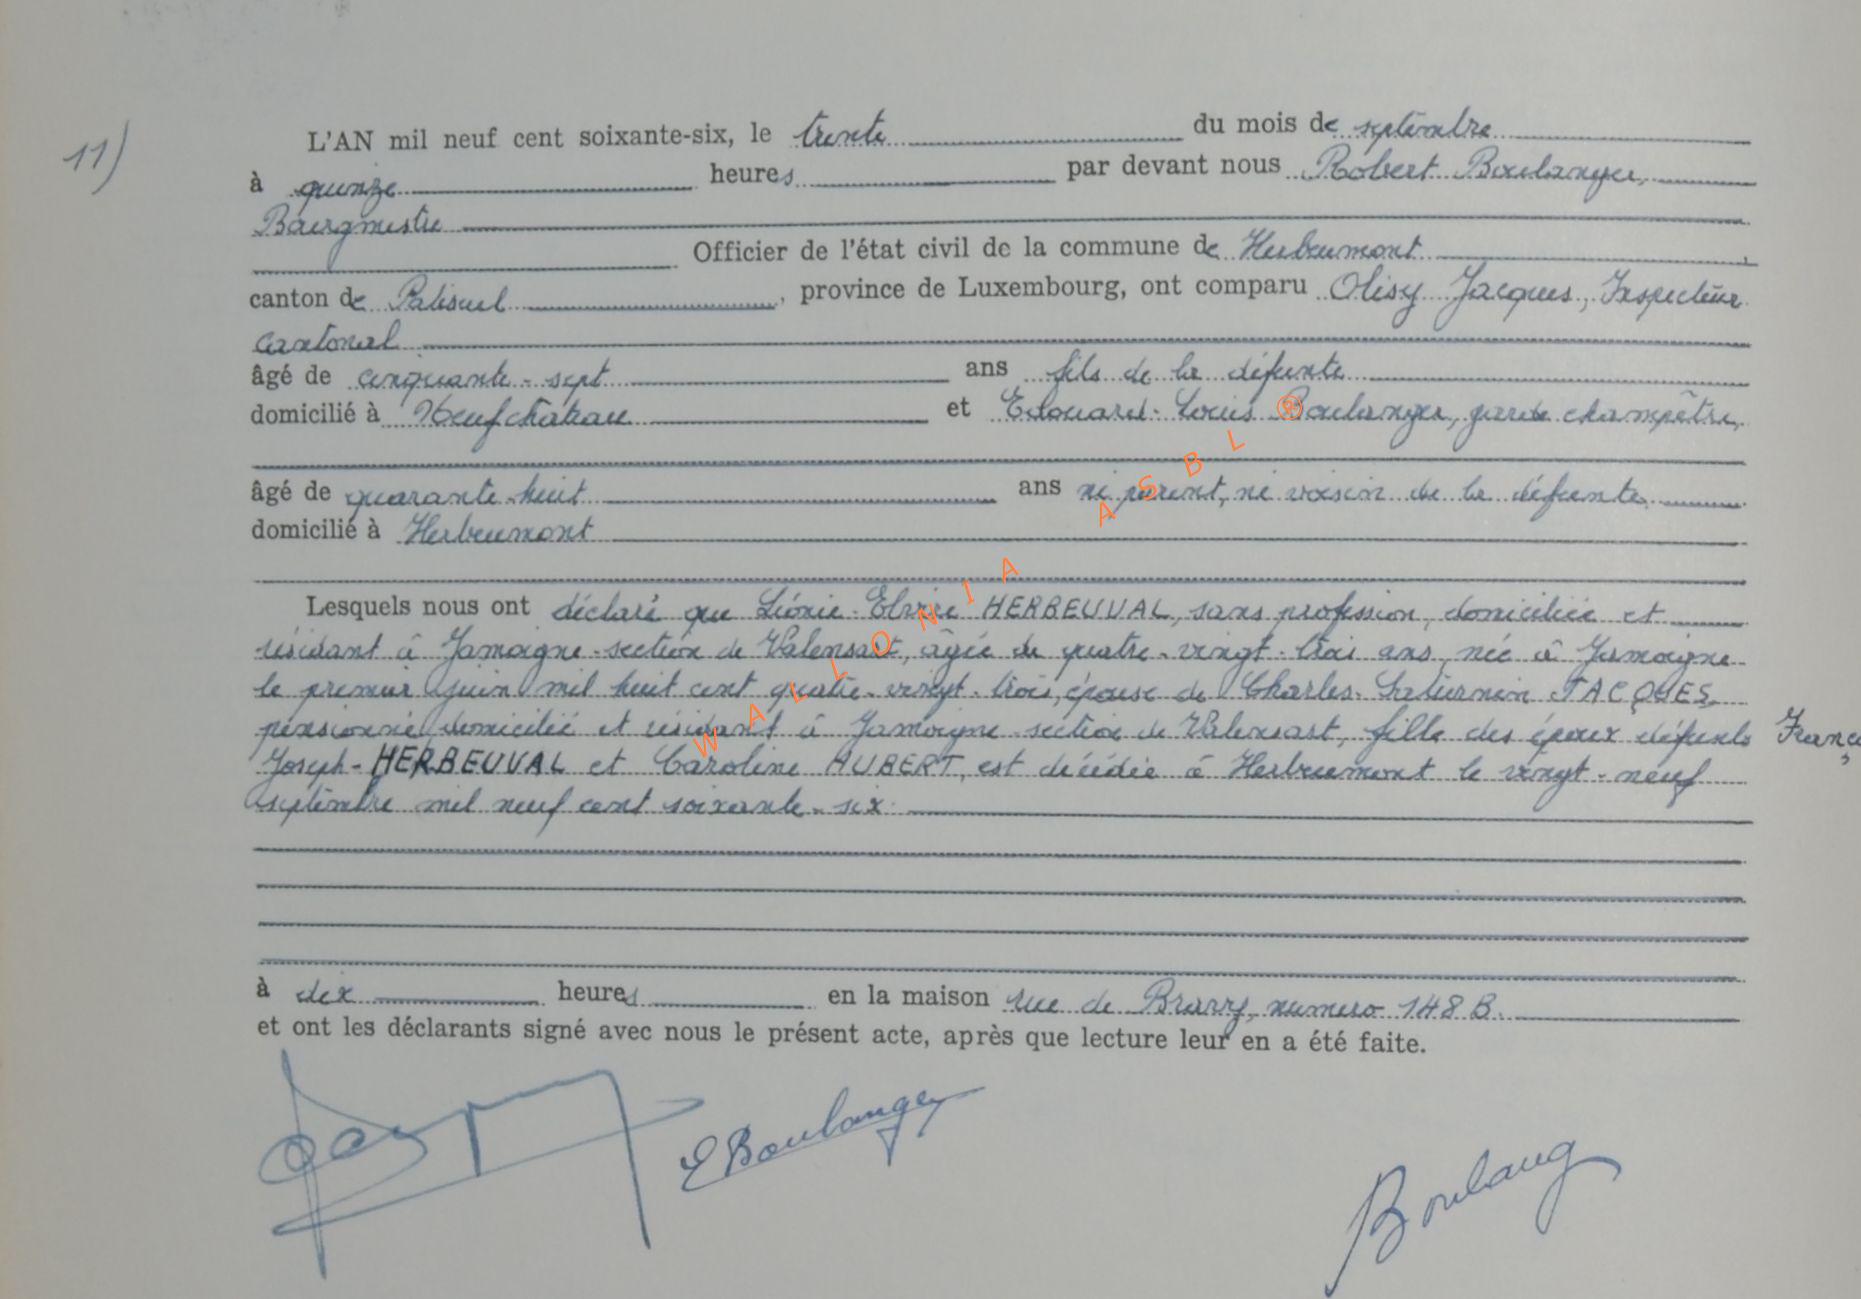 11)
L'AN mil neuf cent soixante-six, le trente du mois de septembre
à quinze heures par devant nous Robert Boulanger,
Bourgmestre
Officier de l'état civil de la commune de Herbeumont
canton de Paliseul, province de Luxembourg, ont comparu Olisy Jacques, Inspecteur
cantonal
âgé de cinquante-sept ans fils de la défunte
domicilié à Neufchâteau et Edouard-Louis Boulanger, garde champêtre,
âgé de quarante-huit ans ni parent, ni voisin de la défunte
domicilié à Herbeumont
Lesquels nous ont déclaré que Léonie-Elvire HERBEUVAL, sans profession, domiciliée et
résidant à Jamoigne-section de Valensart, âgée de quatre-vingt-trois ans, née à Jamoigne
le premier juin mil huit cent quatre-vingt-trois, épouse de Charles-Saturnin JACQUES,
pensionné, domicilié et résidant à Jamoigne-section de Valensart, fille des époux défunts Franç
Joseph-HERBEUVAL et Caroline HUBERT, est décédée à Herbeumont le vingt-neuf
septembre mil neuf cent soixante-six
à dix heures en la maison rue de numero 148 B.
et ont les déclarants signé avec nous le présent acte, après que lecture leur en a été faite.
E Boulanger
Boulang
WALLONIA ASBL ®